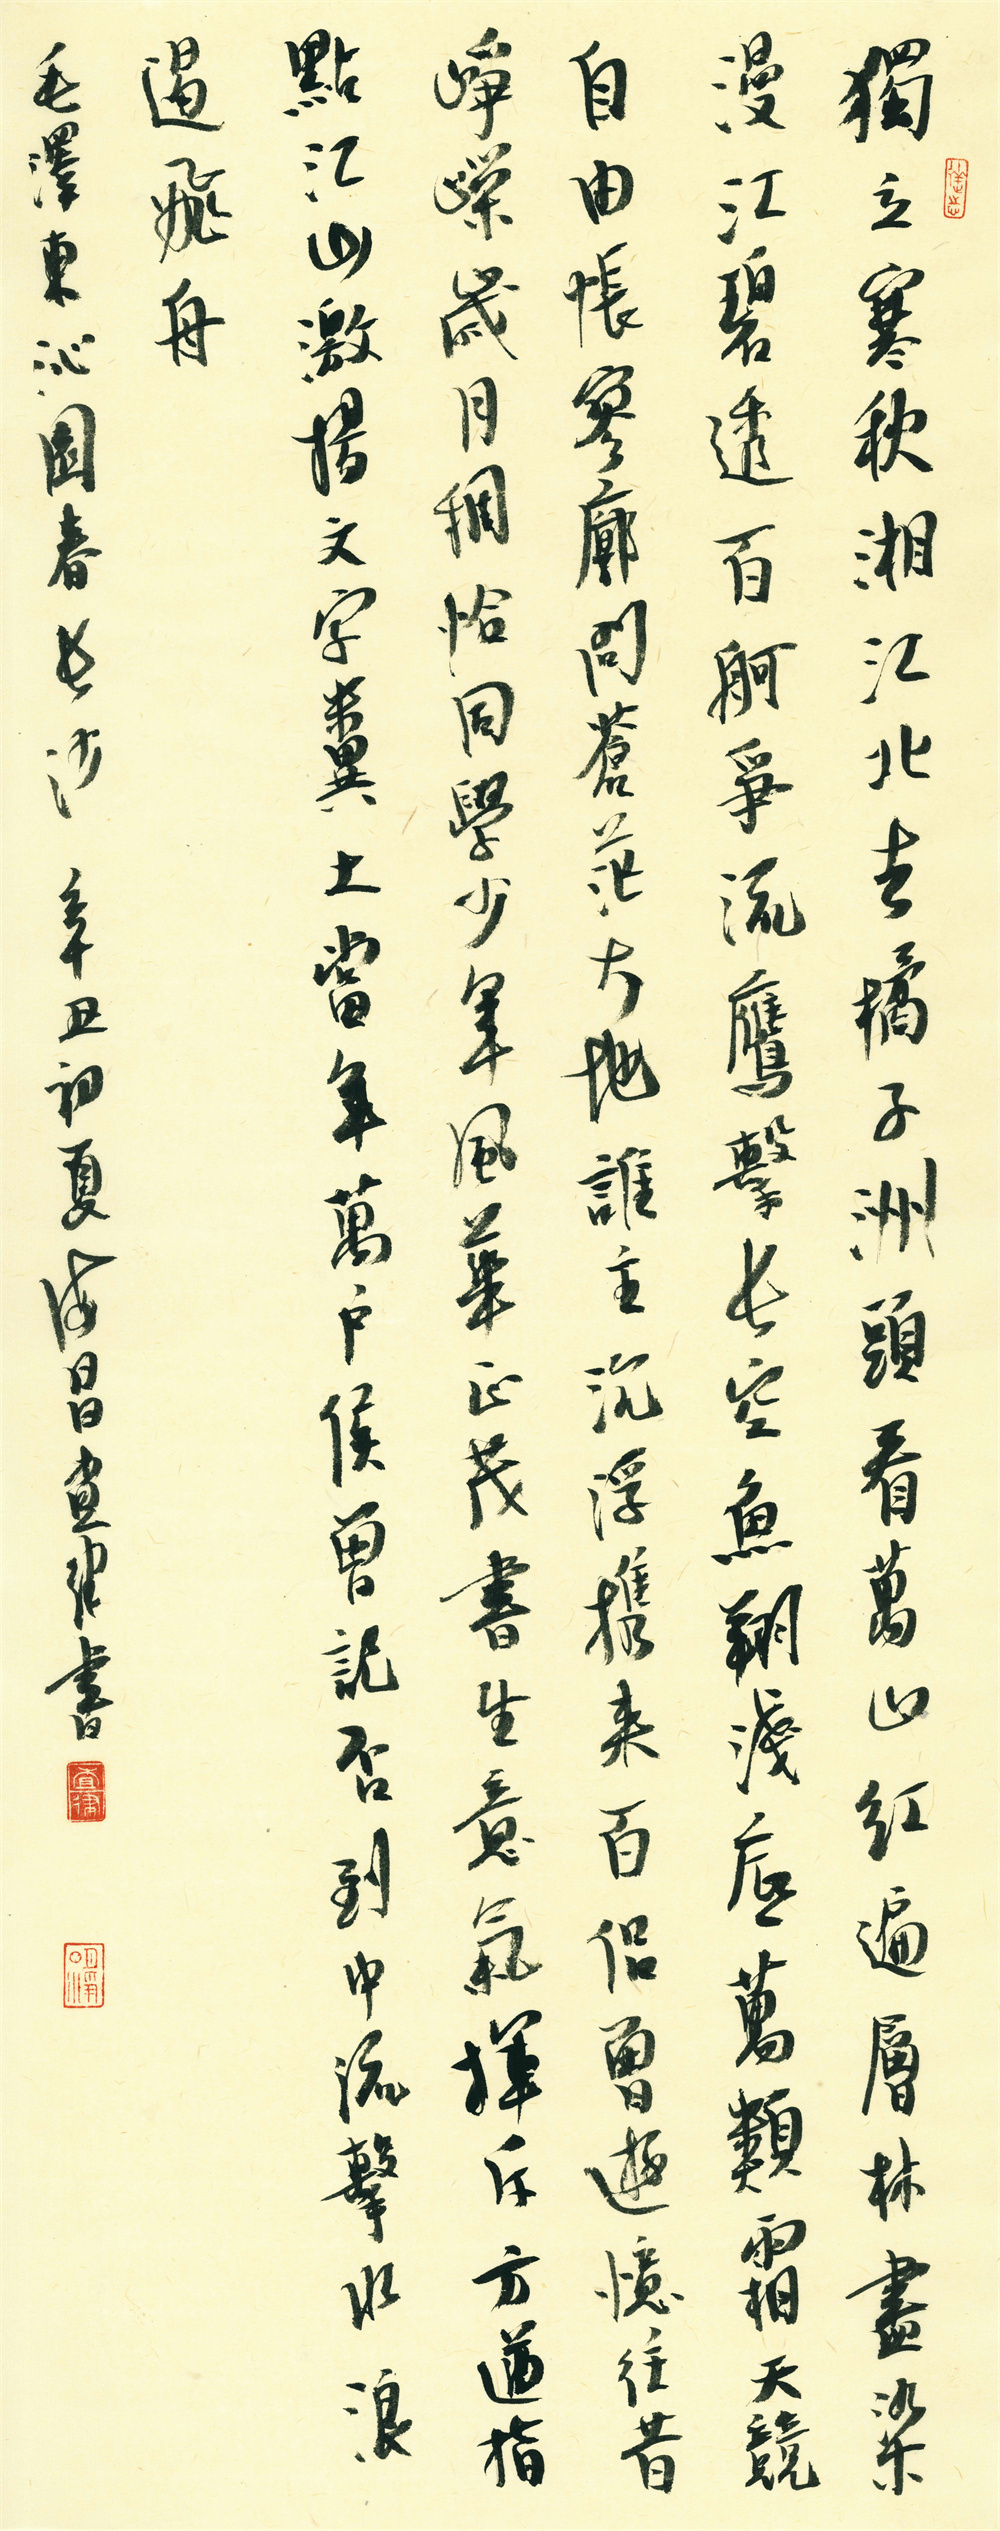 獨立寒秋湘江北去橘子洲頭看萬山紅遍層林盡染
漫江碧透百舸爭流鷹擊长空魚翔淺底萬類霜天競
自由悵寥廓問蒼茫大地誰主沉浮攜来百侣曾遊憶往昔
崢嶸歲月稠恰同學少年風華正茂書生意氣揮斥方遒指
點江山激揚文字糞土當年萬户侯曾記否到中流擊水浪
遏飛舟
毛澤東沁園春长沙 辛丑初夏 昌直律書
直律